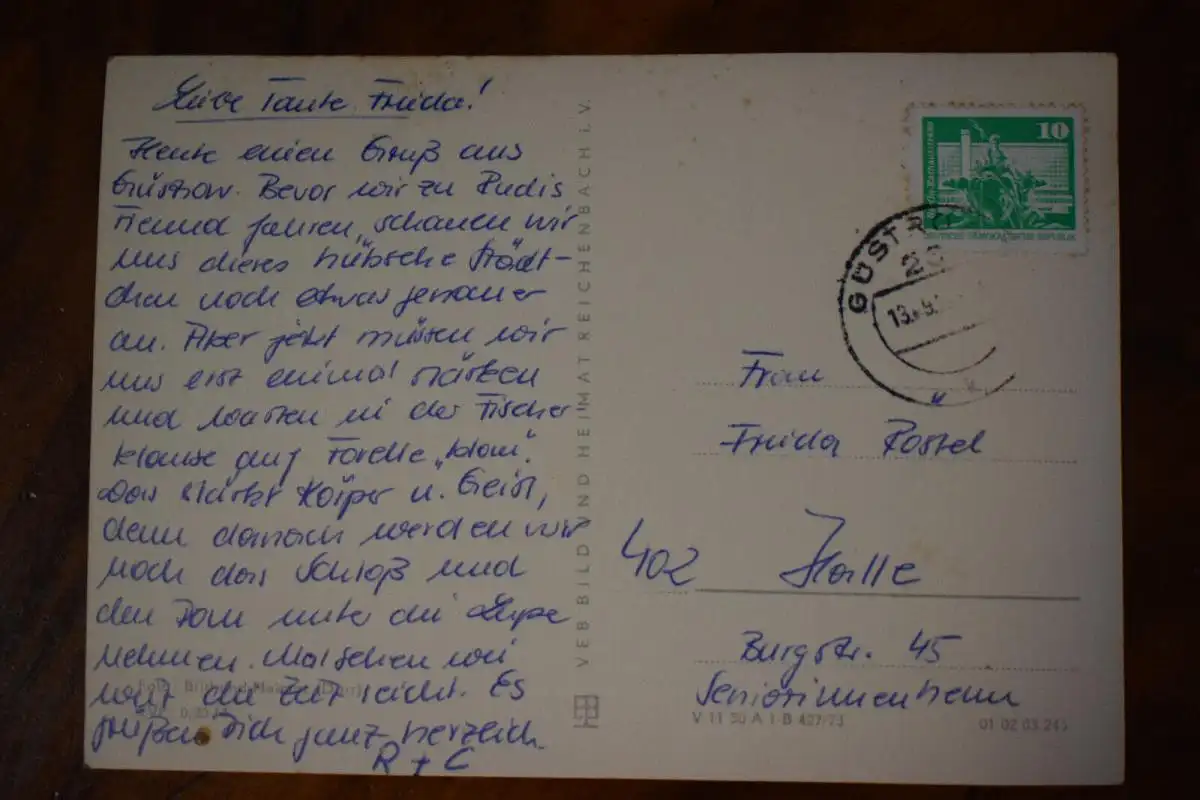 Liebe Tante Frieda!
Heute einen Gruß aus
Güstrow. Bevor wir zu Rudis
Freund fahren, schauen wir
uns dieses hübsche Städt-
chen noch etwas genauer
an. Aber jetzt müssen wir
uns erst einmal stärken
und warten in der Fischer
klause auf Forelle „blau".
Das stärkt Körper u. Geist,
denn danach werden wir
noch das Schloß und
den Dom unter die Lupe
nehmen. Mal sehen wie
weit die Zeit reicht. Es
grüßen Dich ganz herzlich
R + C
VEB BILD UND HEIMAT REICHENBACH I. V.
10
DEUTSCHE DEMOKRATISCHE REPUBLIK
GÜSTR
Frau
Frieda Rostel
402 Halle
Burgstr. 45
Seniorinnenheim
V 11 50 A 1 B 427/73
01 02 03 24